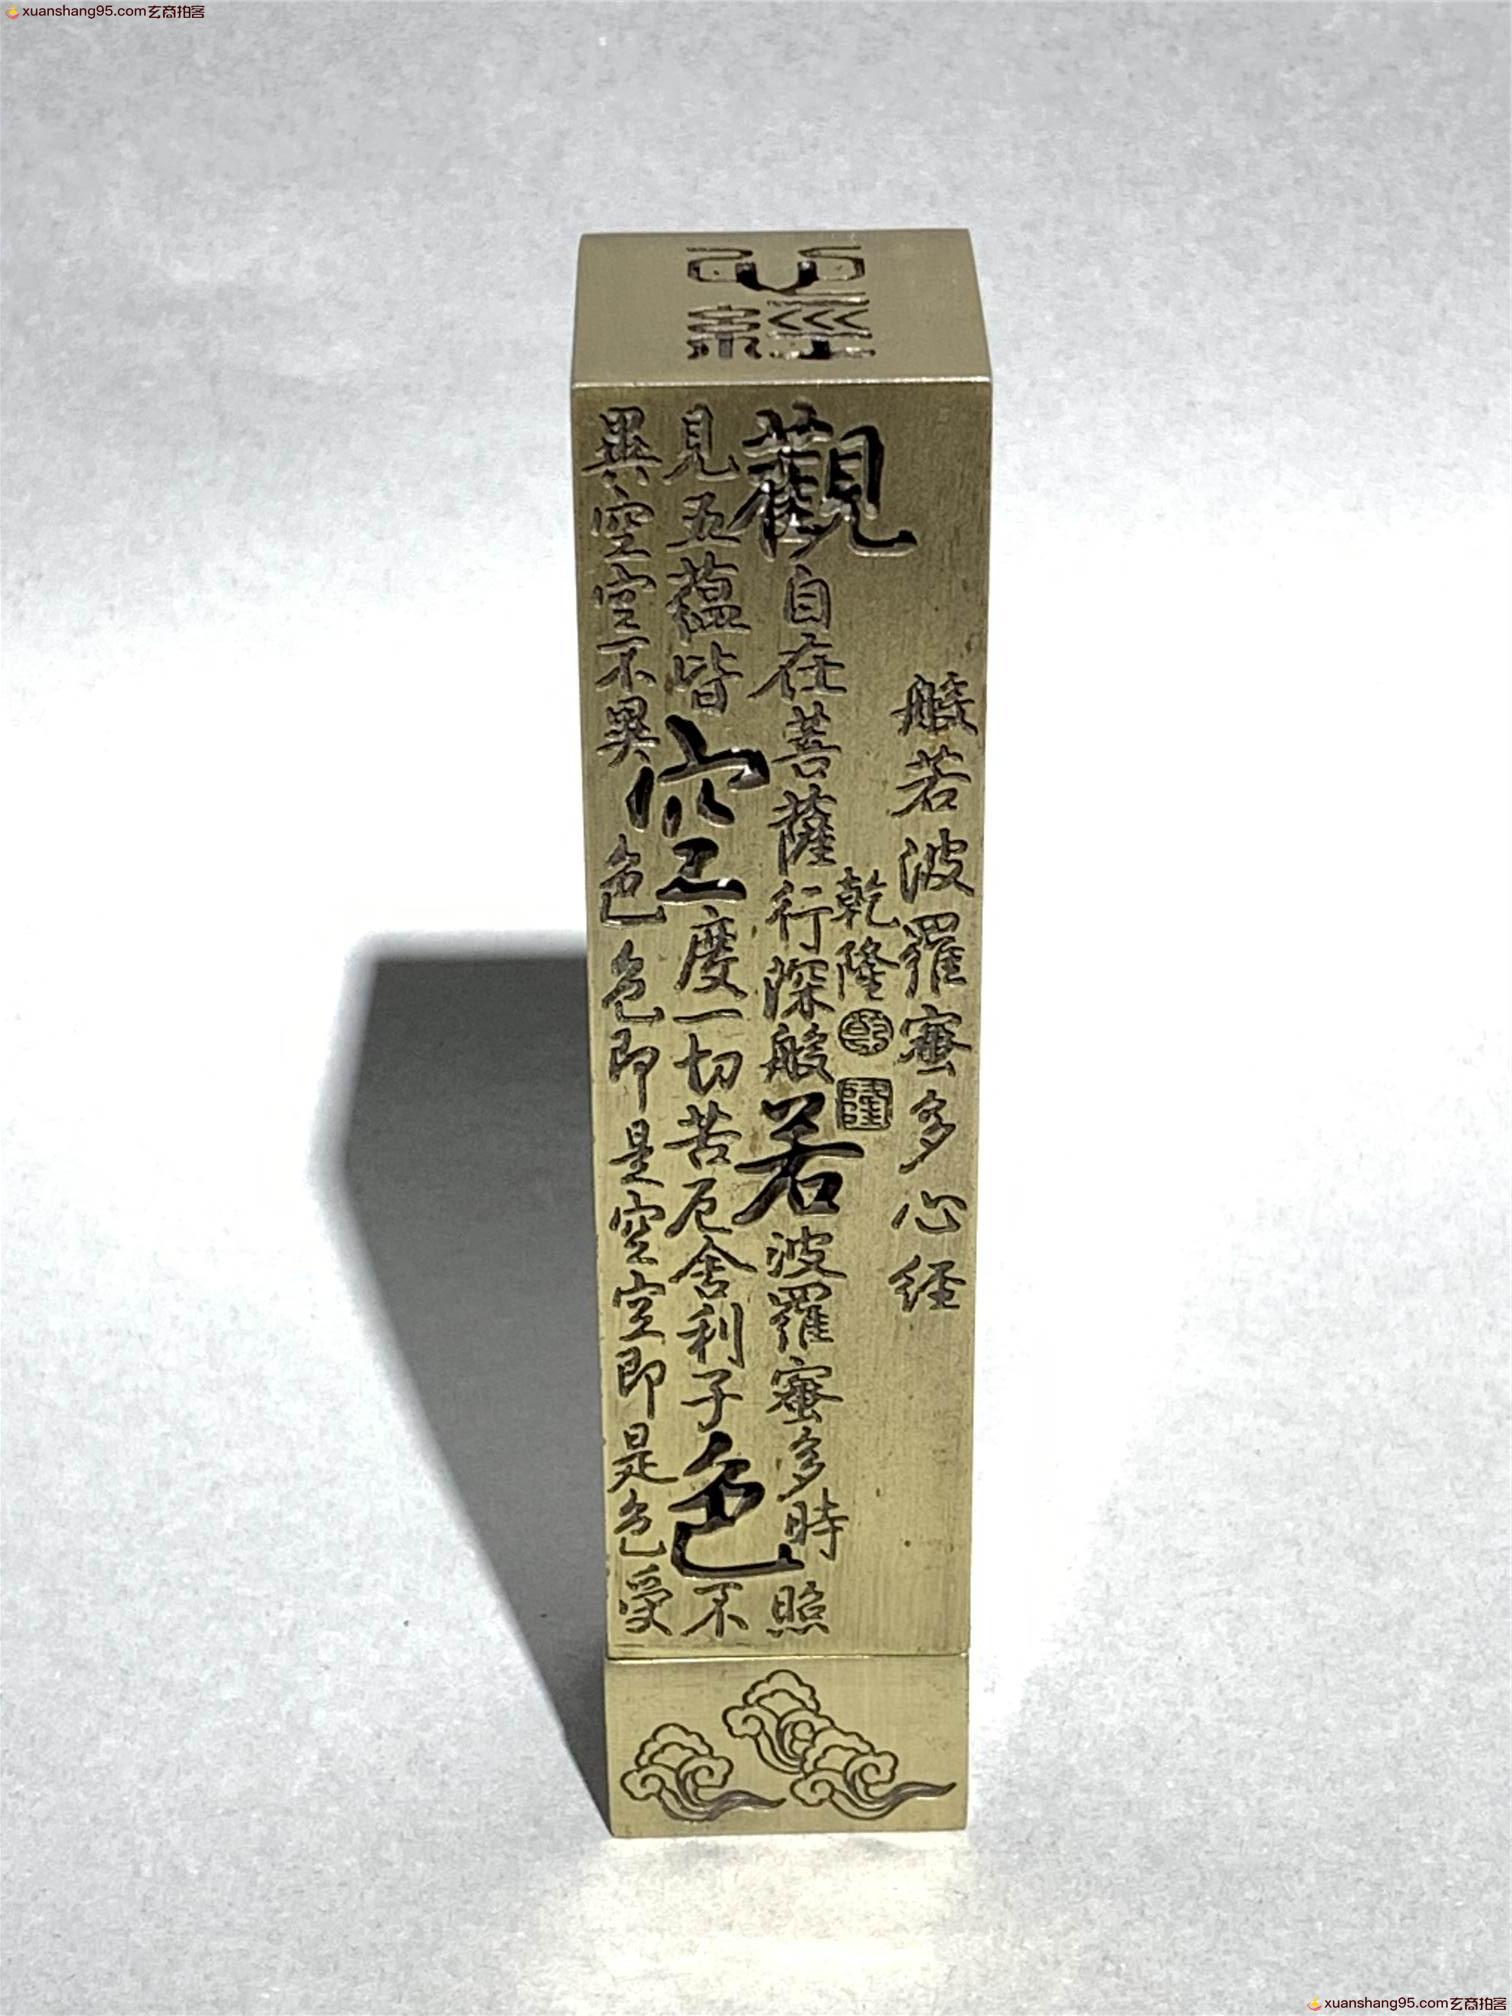 xuanshang95.com玄商拍客
心經
般若波羅蜜多心経
乾隆
乾
隆
觀自在菩薩行深般若波羅蜜多時照
見五蘊皆空度一切苦厄舍利子色不
異空空不異色色即是空空即是色受
xuanshang95.com玄商拍客